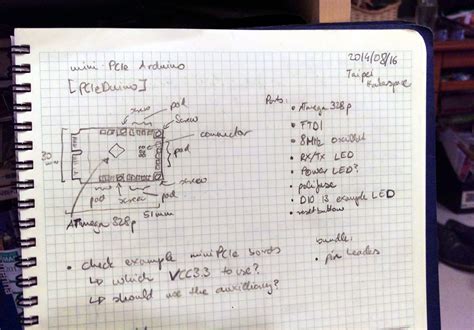 mini PCIe Arduino
[PCIeDuino]
2014/08/16
Taipei
Hackerspace
screw
pod
screw
connector
pod
30 mm
pod
screw
screw
51mm
ATmega 328p
Parts:
• ATmega 328p
• FTDI
• 8MHz oscillator
• RX/TX LED
Power LED?
• polyfuse
• D10 13 example LED
• reset button
bundle:
• pin headers
• check example miniPCIe boards
↳ which VCC3.3 to use?
↳ should use the auxilliary?